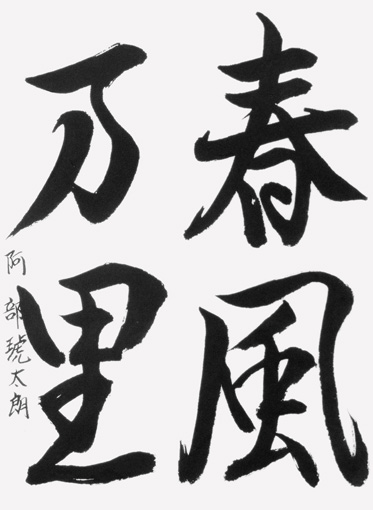 春風
万里
阿部琥太朗